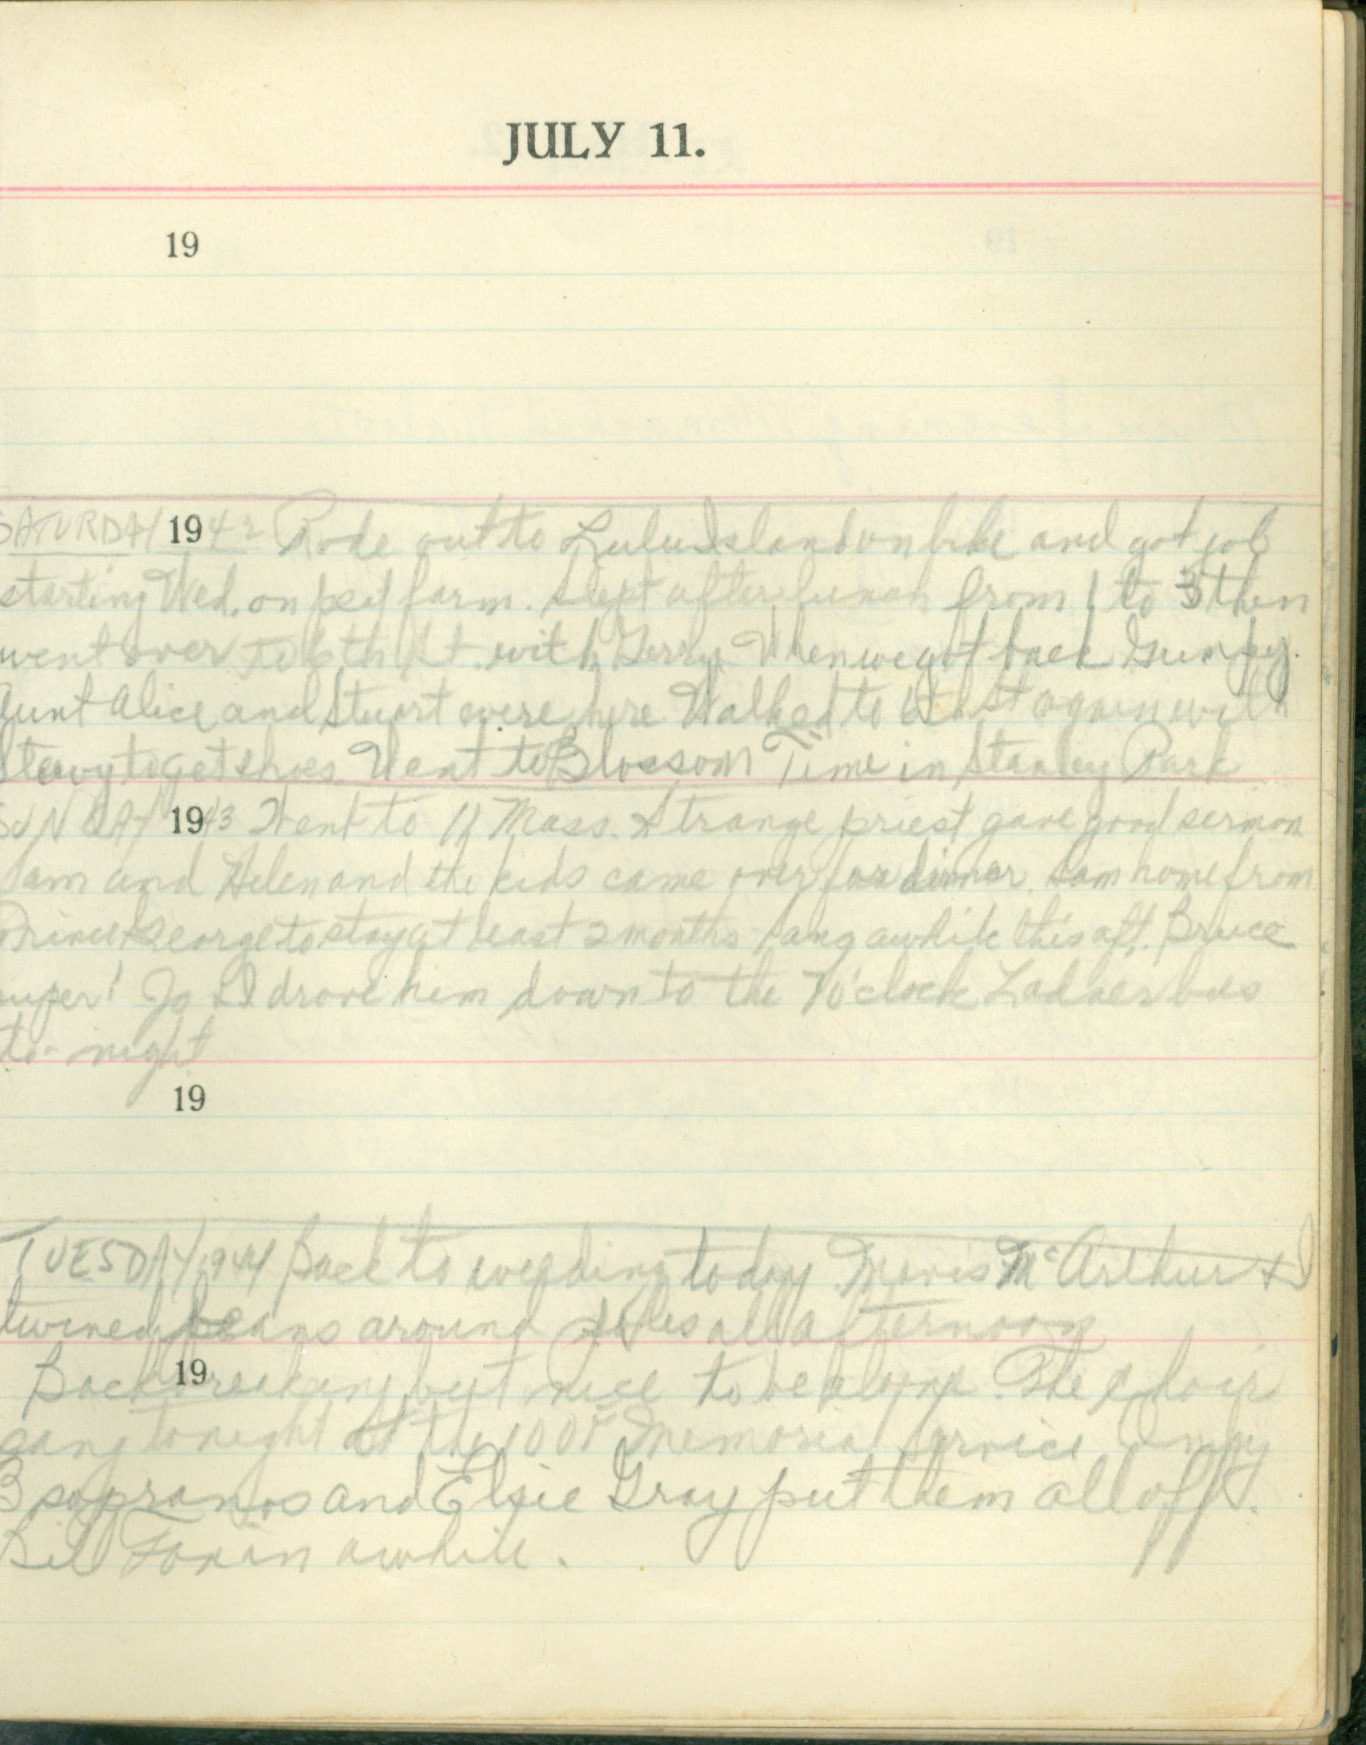 JULY 11.
19
SATURDAY 1942 Rode out to Lulu Island on bike and got job
starting Wed. on farm. Slept after lunch from 1 to 3 then
went over to 6th St. with Gerry. When we got back Gumpy.
Aunt Alice and Stuart were here Walked to 6th St again with
to get shoes. Went to Blossom Time in Stanley Park
SUNDAY 1943 Went to 11 Mass. Strange priest gave good sermon
Sam and Helen and the kids came over for dinner. Sam home from
Prince George to stay at least 2 months Sang awhile this aft. Bruce
super! Jo & I drove him down to the 7 o'clock Ladner bus
to-night
19
TUESDAY 1944 Back to weeding today. Mavis McArthur & I
twined beans around poles all afternoon
19
Backbreaking but nice to be alone. The choir
sang tonight at the IODE Memorial Service Only
3 sopranos and Elsie Gray put them all off.
Bill in awhile.